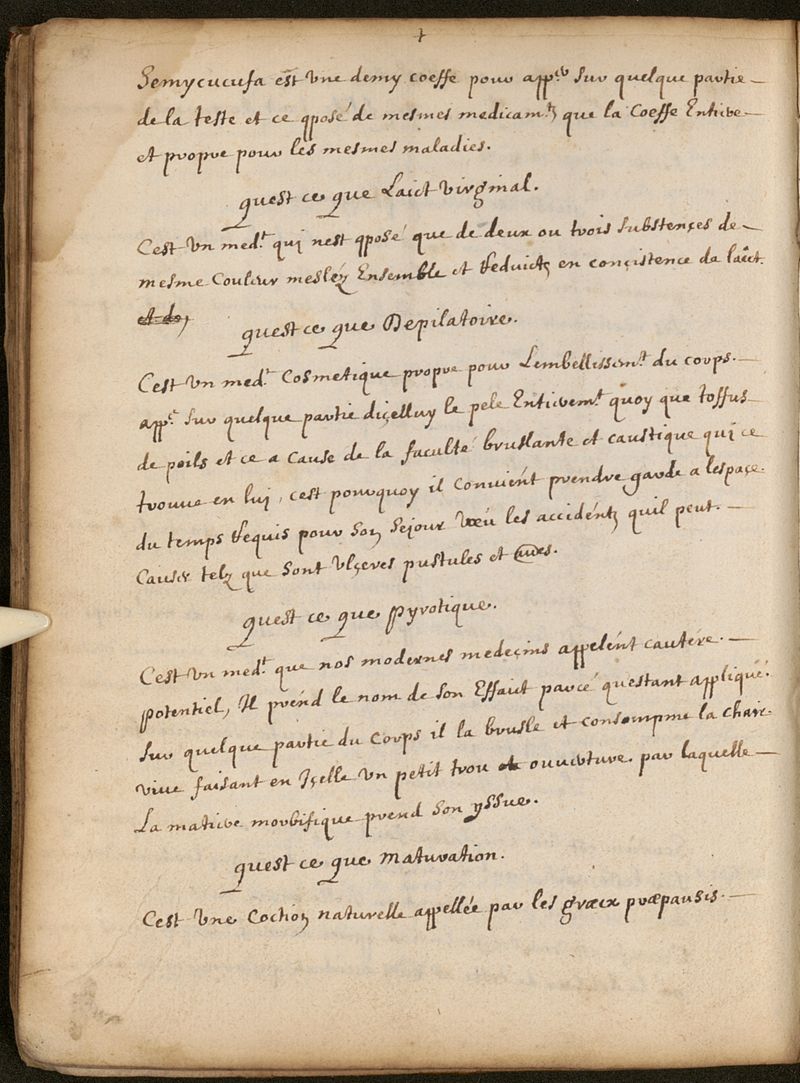 +
Semycucufa est Une demy coeffe pour app.er sur quelque partie
de la teste et ce qposé de mesmes medicam.ts que la Coeffe Entiere
et propre pour les mesmes maladies.
quest ce que Laict virginal.
Cest Un med.t qui nest qposé que de deux ou trois substençes de
mesme Couleur mesléz Ensemble et Reduictz en conçistence de laict.
et de,
quest ce que Depilatoire.
Cest Un med.t Cosmetique propre pour Lembellissem.t du corps.
app.é sur quelque partie diçelluy le pele Entierem.t quoy que toffus
de poils et ce a cause de la faculté bruslante et caustique qui ce
trouue en lui, cest pourquoy il Conuient prendre garde a lespaçe
du temps Requis pour son sejour veu les accidéntz quil peut.
Causer telz que sont Ulçeres pustules et
quest ce que pyrotique.
Cest Un med.t que nos modernes medeçins appelént cautere.
potentiel, Il prénd le nom de son Effaict parcé questant appliqué.
sur quelque partie du Corps il la brusle et consompme la chair
viue faisant en Içelle Un petit trou ouuerture par laquelle
La matiere morbifique prend son yssue.
quest ce que maturation.
Cest Une Coction naturelle appellée par les græcx præpansis.